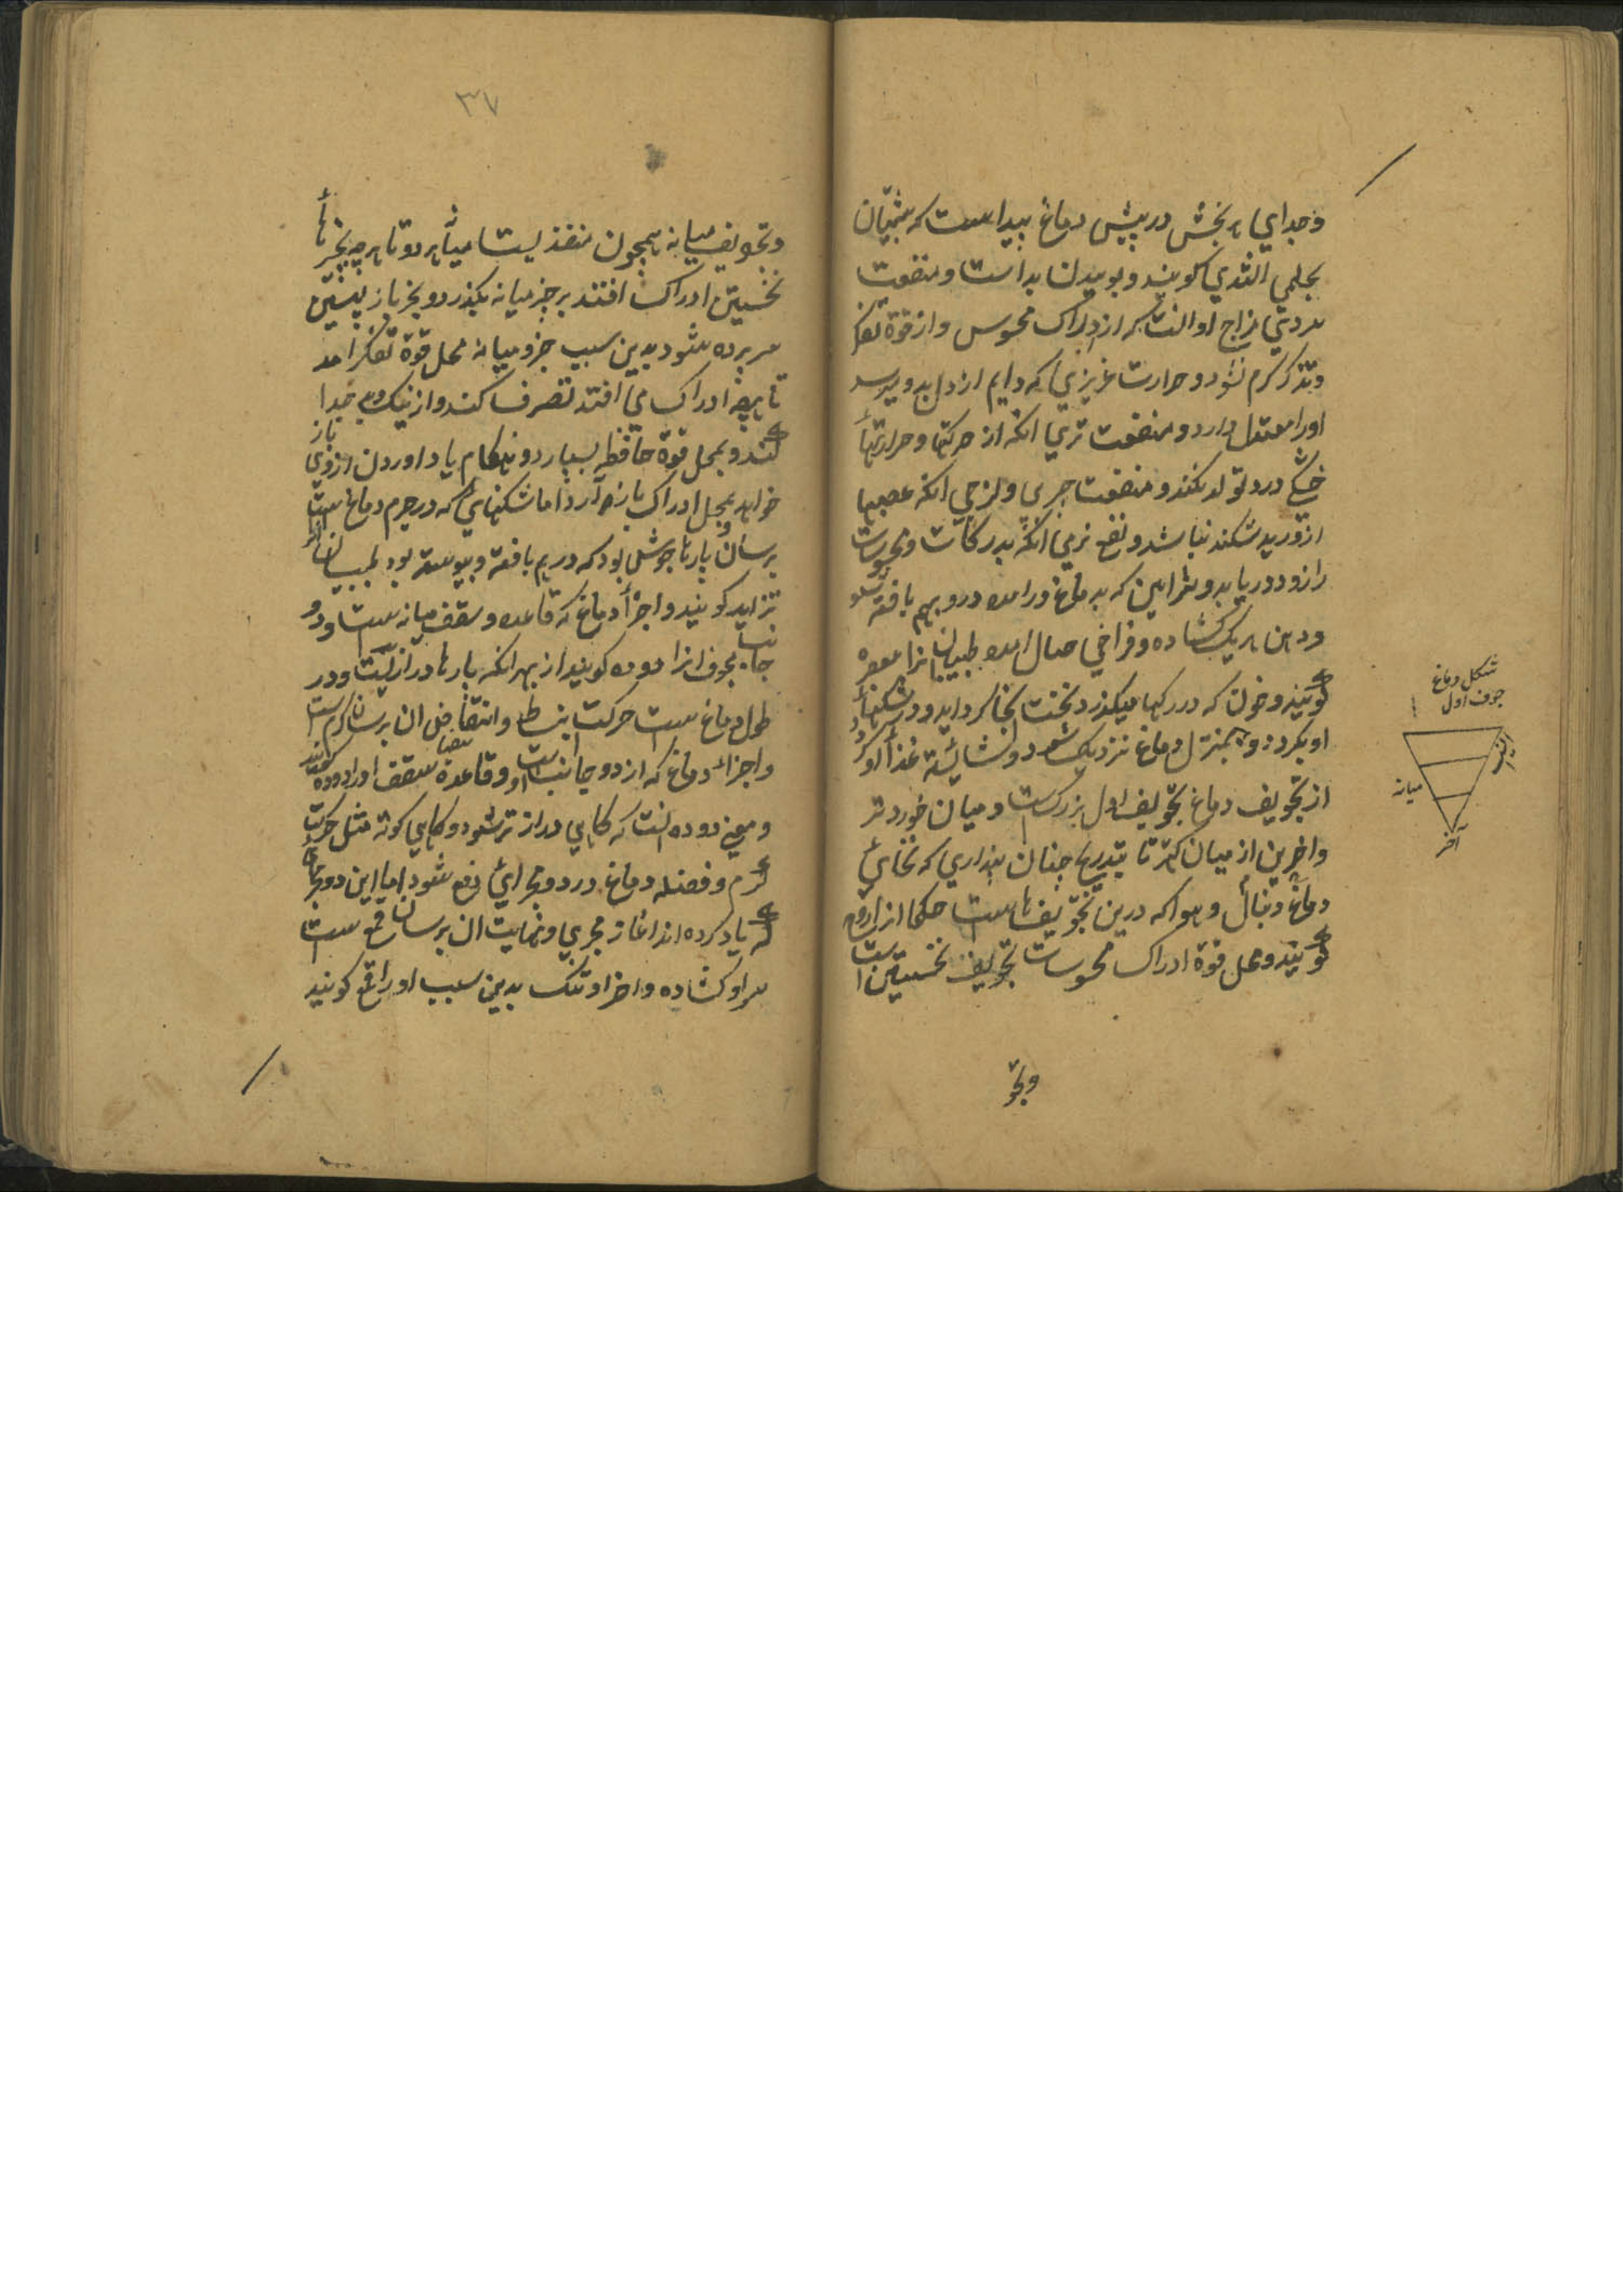 وجدایی هر بخش در پیش دماغ پیداست که بثمیان
بحلمی الثدی کویند و بوییدن بداست و منفعت
سردی مزاج او انست که از ادراک محسوس و از قوة تفکر
و تذکر کرم نشود و حرارت غریزی که دایم از دل بدو میرسد
اورا معتدل دارد و منفعت تری انکه از حرکتها و حرارتهاء
خشکی درد تولد نکند و منفعت چربی و لزجی انکه عصبها
ازو روید شکنند نباشد و نفع نرمی انکه مدرکات و محسوسات
را زود دریابد و شرایین که بدماغ درامده درو بهم بافته شو
ودهن هریک کشاده و فراخی حال امده طبیبان انرا معصره
کویند و خون که در رکها میکذرد نخست بخا کرداید و در شکنهاء
او بکردد و بمنزل دماغ نزدیک شود و شائسته غذاء او کردد
از تجویف دماغ تجویف اول بزرکست و میان خوردتر
واخرین از میان کمتر تا بتدریج چنان پنداری که نخاع
دماغ دنبال و هوا که درین تجویف هاست حکما انرا روح
کویند و محل قوة ادراک محسوسات تجویف نخستین است
وتجو
شکل دماغ
جوف اول
میانه
آخر
۳۷
وتجویف میانه همچون منفذیست میانهٔ هر دو تا هرچه بجزء
نخستین ادراک افتد بر جزء میانه بکذرد و بجزء باز پسین
سپرده شود بدین سبب جزو میانه محل قوة تفکر امد
تا هرچه ادراک می افتد تصرف کند و از نیک و بد جدا
کند و بمحل قوة حافظه بسپارد و هنکام یاد اوردن ازوی باز
خواهد بمحل ادراک باز ارد اما شکنهای که در جرم دماغ است
برسان پارها جوشل بود که درهم بافته و پیوسته بود طبیبان انرا
تزاید کویند و اجزاء دماغ که قاعده و سقف میانه است و دو
جانب مجوف انرا دوده کویند از بهر انکه پارها درازیست و در
طول دماغ است حرکت انبساط و انقباض ان برسان کرم است
واجزاء دماغ که از دو جانب است و قاعده سقف او را دوده کویند
و معنی دوده انست که کاهی دراز تر شود و کاهی کوته مثل حرکت
کرم و فضله دماغ در دو مجرای دفع شود اما این دو مجرای
که یاد کرده اند اغاز مجری و نهایت ان برسان قمع است
سر او کشاده و اخر او تنک بدین سبب او را قمع کویند